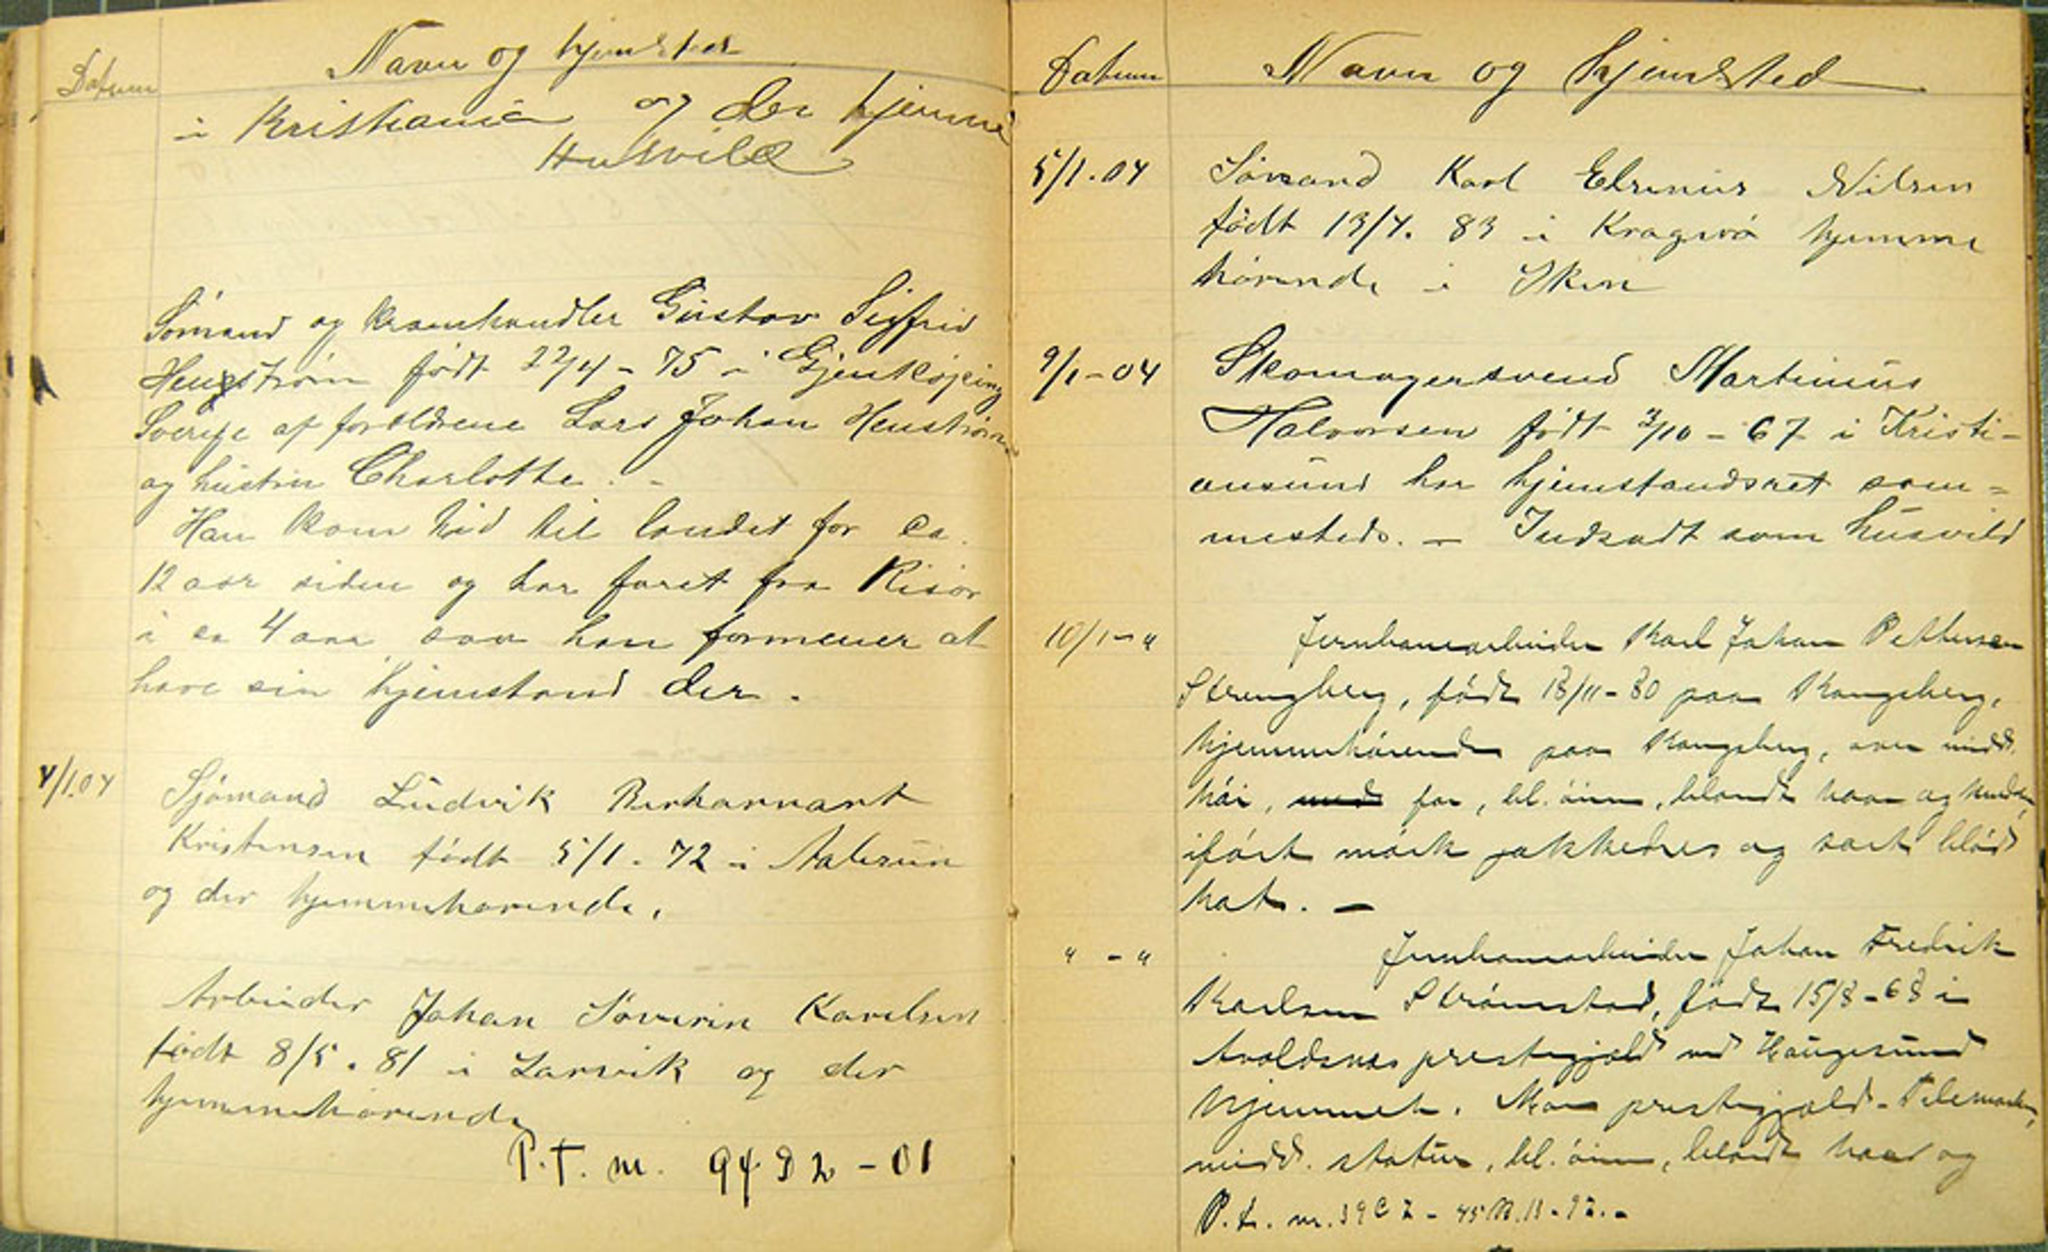 Datum Navn og hjemsted
i Kristiania og der hjemme
Husvild
Sömand og kramhandler Gustav Sigfrid
Hengstrøm født 22/4 - 75 i Gjenkøping
Sverige af forældrene Lars Johan Henstrøm
og hustru Charlotte. -
Han kom hid til landet for ca.
12 aar siden og har faret fra Risør
i ca 4 aar saa han formener at
have sin hjemstand der.
4/1.04 Sjømand Ludvik
Kristensen født 5/1 - 72 i Aalesun
og der hjemmehørende.
Arbeider Johan Søverin Karelsen
født 8/5. 81 i Larvik og der
hjemmehørende
P.T. m. 94 D 2 - 01
Datum Navn og hjemsted
5/1.04 Sømand Karl Elenius Nilsen
født 13/7. 83 i Kragerø hjemme
hørende i Skien
9/1-04 Skomagersvend Martinius
Halvorsen født 3/10 - 67 i Kristi-
ansund har hjemstandsret sam=
mesteds. - Indsadt som husvild
10/1-" Jernbanearbeider Karl Johan Pettersen
Strengberg, født 18/11-80 paa Kongsberg,
hjemmehørende paa Kongsberg, over midd.
høi, med før, bl. øine, blondt haar og
iført mørk jakkedres og sort blød
hat. -
" - " Jernbanearbeider Johan Fredrik
Karlsen Strømstad, født 15/8-68 i
Avaldsnes prestegjæld ved Haugesund
hjemmeh. Moe prestegjæld - Telemarken,
midd. statur, bl. øine, blondt haar og
P.t. nr. 39 C 2 - 45